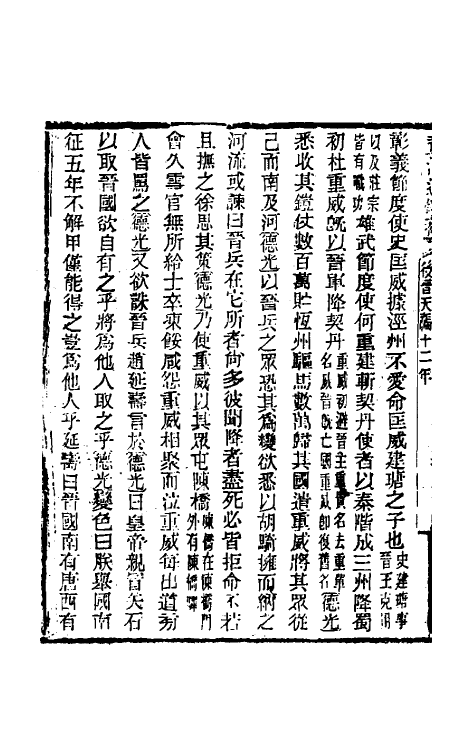 彰義節度使史匡威據涇州不愛命匡威建瑭之子也史建瑭事晉王克用
以及莊宗皆有戰功雄武節度使何重建斬契丹使者以秦階成三州降蜀
初杜重威旣以晉軍降契丹重威初避晉主重貴名去重單名威晉旣亡國重威卽復舊名德光
悉收其鎧仗數百萬貯恆州驅馬數萬歸其國遣重威將其眾從
己而南及河德光以晉兵之眾恐其爲變欲悉以胡騎擁而納之
河流或諫曰晉兵在它所者尚多彼聞降者盡死必皆拒命不若
且撫之徐思其策德光乃使重威以其眾屯陳橋陳橋在陳橋門外有陳橋驛
會久雪官無所給士卒凍餒咸怨重威相聚而泣重威每出道旁
人皆罵之德光又欲誅晉兵趙延壽言於德光曰皇帝親冒矢石
以取晉國欲自有之乎將爲他人取之乎德光變色曰朕舉國南
征五年不解甲僅能得之豈爲他人乎延壽曰晉國南有唐西有